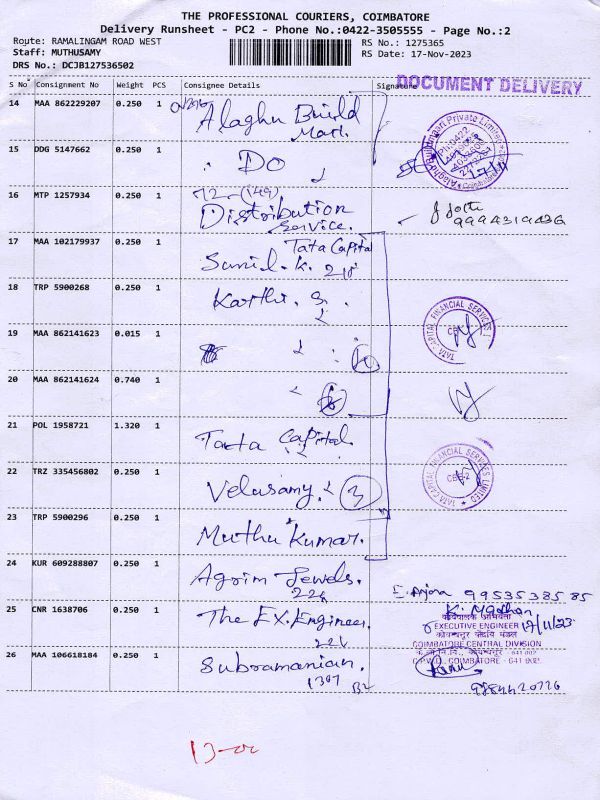 THE PROFESSIONAL COURIERS, COIMBATORE
Delivery Runsheet - PC2 - Phone No.:0422-3505555 - Page No.:2
Route: RAMALINGAM ROAD WEST
Staff: MUTHUSAMY
DRS No.: DCJB127536502
RS No.: 1275365
RS Date: 17-Nov-2023
S No Consignment No Weight PCS Consignee Details Signature
DOCUMENT DELIVERY
14 MAA 862229207 0.250 1 Alaghu Build
Mart.
15 DDG 5147662 0.250 1 DO
16 MTP 1257934 0.250 1 72 - (49)
Distribution
Service.
9994319436
17 MAA 102179937 0.250 1 Tata Capital
Sunil. K.
18 TRP 5900268 0.250 1 Karthi. S.
TATA CAPITAL FINANCIAL SERVICES
19 MAA 862141623 0.015 1
20 MAA 862141624 0.740 1
21 POL 1958721 1.320 1 Tata Capital.
TATA CAPITAL FINANCIAL SERVICES LIMITED
CBE-2
22 TRZ 335456802 0.250 1 Velusamy. 3
23 TRP 5900296 0.250 1 Muthu Kumar.
24 KUR 609288807 0.250 1 Agrim Jewels.
226
99535385 85
25 CNR 1638706 0.250 1 The EX. Engineer.
221
K. Madhan
कार्यपालक अभियंता
EXECUTIVE ENGINEER 17/11/23
COIMBATORE CENTRAL DIVISION
C.P.W.D., COIMBATORE - 641 002.
26 MAA 106618184 0.250 1 Subramanian.
1307 B2
9884420776
13-00